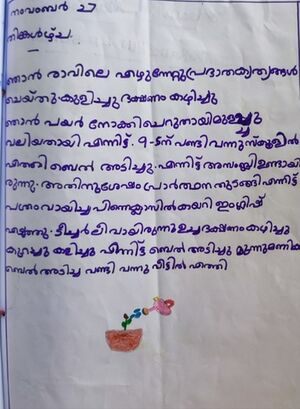 നവംബർ 27
തിങ്കൾഴ്ച
ഞാൻ രാവിലെ എഴുന്നേറ്റു പ്രഭാതകൃത്യങ്ങൾ
ചെയ്തു. കുളിച്ചു ഭക്ഷണം കഴിച്ചു
ഞാൻ പയർ നോക്കി ചെറുതായി മുളച്ചു
വലിയതായി എന്നിട്ട്. 9-5ന് വണ്ടി വന്നു സ്കൂളിൽ
എത്തി ബെൽ അടിച്ചു. എന്നിട്ട് അസംബ്ലി ഉണ്ടായി
രുന്നു. അതിനുശേഷം പ്രാർത്ഥന തുടങ്ങി എന്നിട്ട്
പത്രം വായിച്ചു പിന്നെ ക്ലാസിൽ കയറി ഇംഗ്ലിഷ്
എടുത്തു. ടീച്ചർ ലീവായിരുന്നു ഉച്ച ഭക്ഷണം കഴിച്ചു
കുറച്ചു കളിച്ചു എന്നിട്ട് ബെൽ അടിച്ചു മൂന്നുമണിക്ക
ബെൽ അടിച്ച വണ്ടി വന്നു വീട്ടിൽ എത്തി